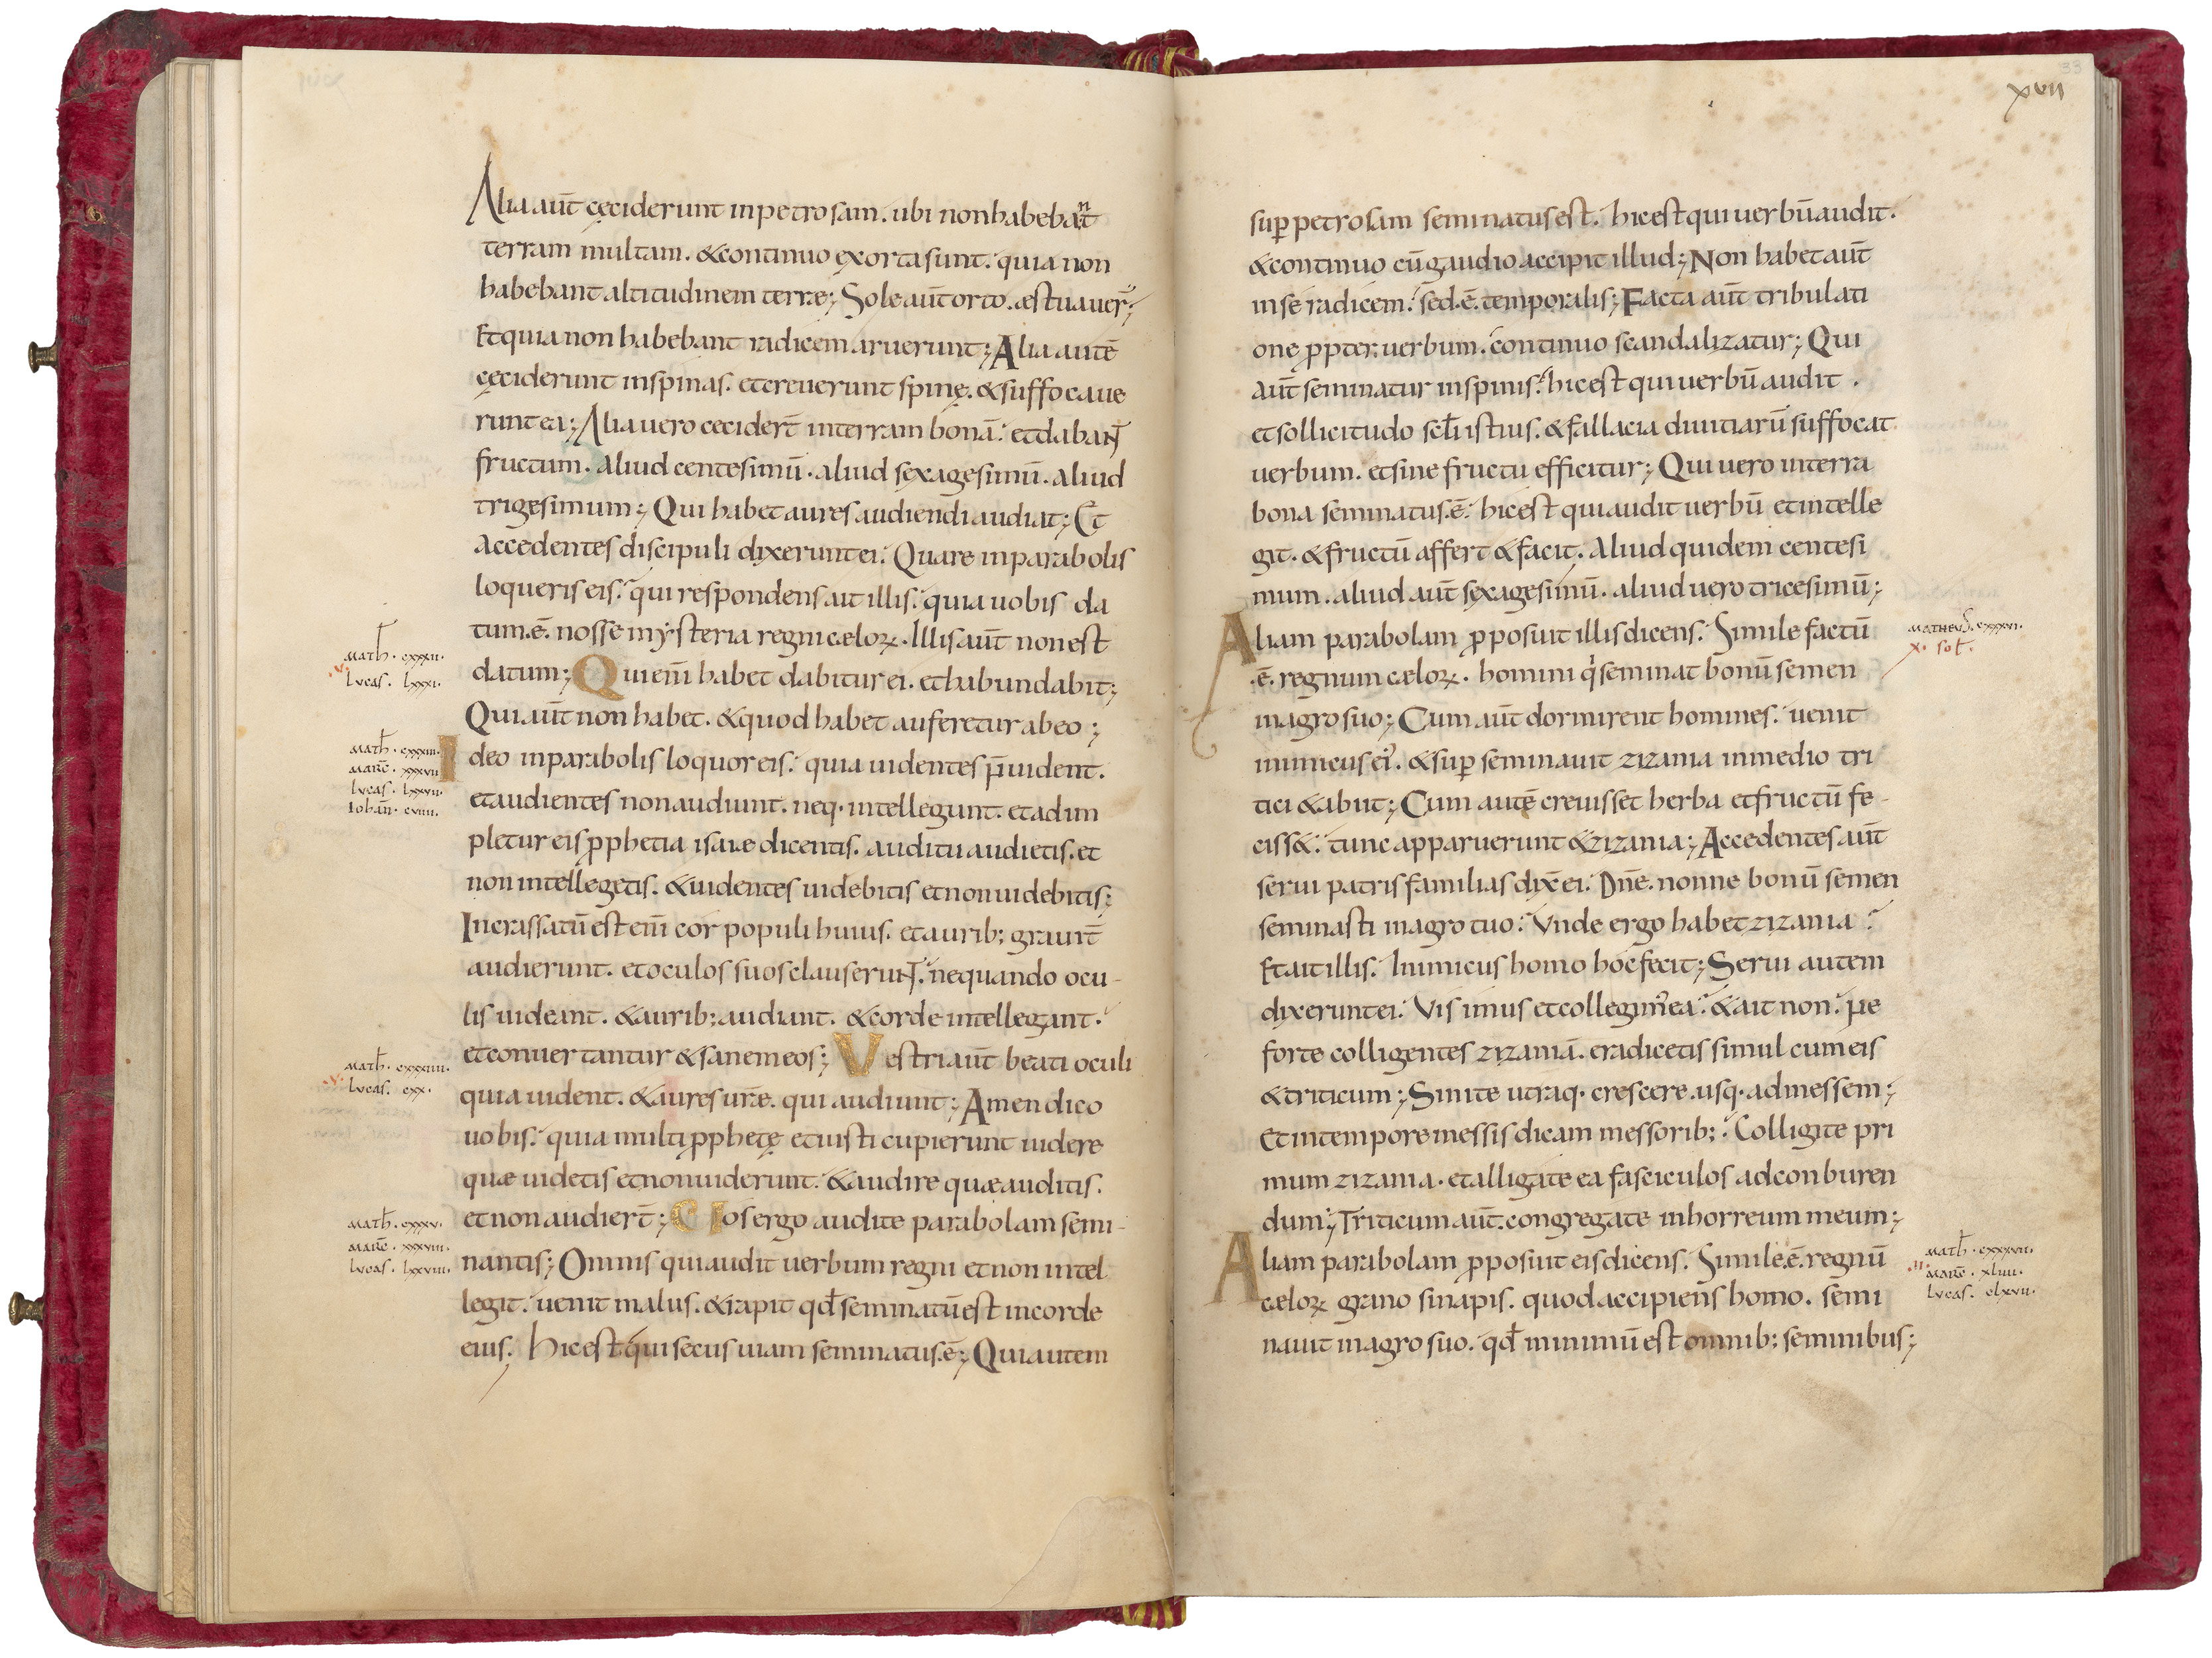 Alia aut̄ cęciderunt in petrosam. ubi non habebant
terram multam. & continuo exorta sunt. quia non
habebant altitudinem terræ; Sole aut̄ orto. æstuauer̄;
Et quia non habebant radicem aruerunt; Alia autē
cęciderunt in spinas. et creuerunt spinę. & suffocaue
runt ea; Alia uero cecider̄t in terram bonā. et dabant
fructum. aliud centesimū. aliud sexagesimū. aliud
trigesimum; Qui habet aures audiendi audiat; Et
accedentes discipuli dixerunt ei. Quare in parabolis
loqueris eis. qui respondens ait illis. quia uobis da
tum.ē. nosse mysteria regni cæloꝝ. Illis aut̄ non est
datum; Qui eni̅ habet dabitur ei. et habundabit;
Qui aut̄ non habet. & quod habet auferetur ab eo;
Ideo in parabolis loquor eis. quia uidentes n̄ uident.
et audientes non audiunt. neq· intellegunt. et adim
pletur eis ꝓphetia isaiæ dicentis. auditu audietis. et
non intellegetis. & uidentes uidebitis et non uidebitis;
Incrassatū est eni̅ cor populi huius. et aurib; grauit̄
audierunt. et oculos suos clauserunt. nequando ocu-
lis uideant. & aurib; audiant. & corde intellegant.
et conuertantur & sanem eos; Vestri aut̄ beati oculi
quia uident. & aures uræ̅. qui audiunt; Amen dico
uobis. quia multi ꝓphetę et iusti cupierunt uidere
quæ uidetis et non uiderunt. & audire quæ auditis.
et non audier̄t; Uos ergo audite parabolam semi-
nantis; Omnis qui audit uerbum regni et non intel
legit. uenit malus. & rapit qđ seminatū est in corde
eius. Hic est qui secus uiam seminatus.ē; Qui autem
math̄. cxxxii.
.v.
lvcas. lxxxi.
math̄. cxxxiii.
marc̄. xxxvii
lvcas. lxxvii.
iohan̄. cviiii.
math̄. cxxxiiii.
.v.
lvcas. cxx.
math̄. cxxxv.
marc̄. xxxviii.
lvcas. lxxviii.
33
xvii
suꝑ petrosam seminatus est. hic est qui uerbū audit.
& continuo cū gaudio accipit illud; Non habet aut̄
in se radicem. sed.ē. temporalis; Facta aut̄ tribulati
one ꝓpter uerbum. continuo scandalizatur; Qui
aut̄ seminatur in spinis. hic est qui uerbū audit.
et sollicitudo sc̄li istius. & fallacia diuitiarū suffocat
uerbum. et sine fructu efficitur; Qui uero in terra
bona seminatus.ē. hic est qui audit uerbū et intelle
git. & fructū affert & facit. aliud quidem centesi
mum. aliud aut̄ sexagesimū. aliud uero tricesimū;
Aliam parabolam ꝓposuit illis dicens. Simile factū
.ē. regnum cæloꝝ. homini qi seminat bonū semen
in agro suo; Cum aut̄ dormirent homines. uenit
inimicus ei’. & suꝑ seminauit zizania in medio tri
tici & abiit; Cum autē creuisset herba et fructū fe-
ciss&. tunc apparuerunt & zizania; Accedentes aut̄
serui patris familias dix̄ ei. Dn̄e. nonne bonū semen
seminasti in agro tuo. Vnde ergo habet zizania?
Et ait illis. Inimicus homo hoc fecit; Serui autem
dixerunt ei. Vis imus et collegim’ ea. & ait non. ne
forte colligentes zizaniā. eradicetis simul cum eis
& triticum; Sinite utraq· crescere. usq· ad messem;
Et in tempore messis dicam messorib;. Colligite pri
mum zizania. et alligate ea fasciculos ad conburen
dum; Triticum aut̄. congregate in horreum meum;
Aliam parabolam ꝓposuit eis dicens. Simile.ē. regnū
cæloꝝ grano sinapis. quod accipiens homo. semi
nauit in agro suo. qđ minimū est omnib; seminibus;
matheus. cxxxvi.
x. sol̄.
math̄. cxxxvii.
.ii.
marc̄. xliiii.
lvcas. clxvii.